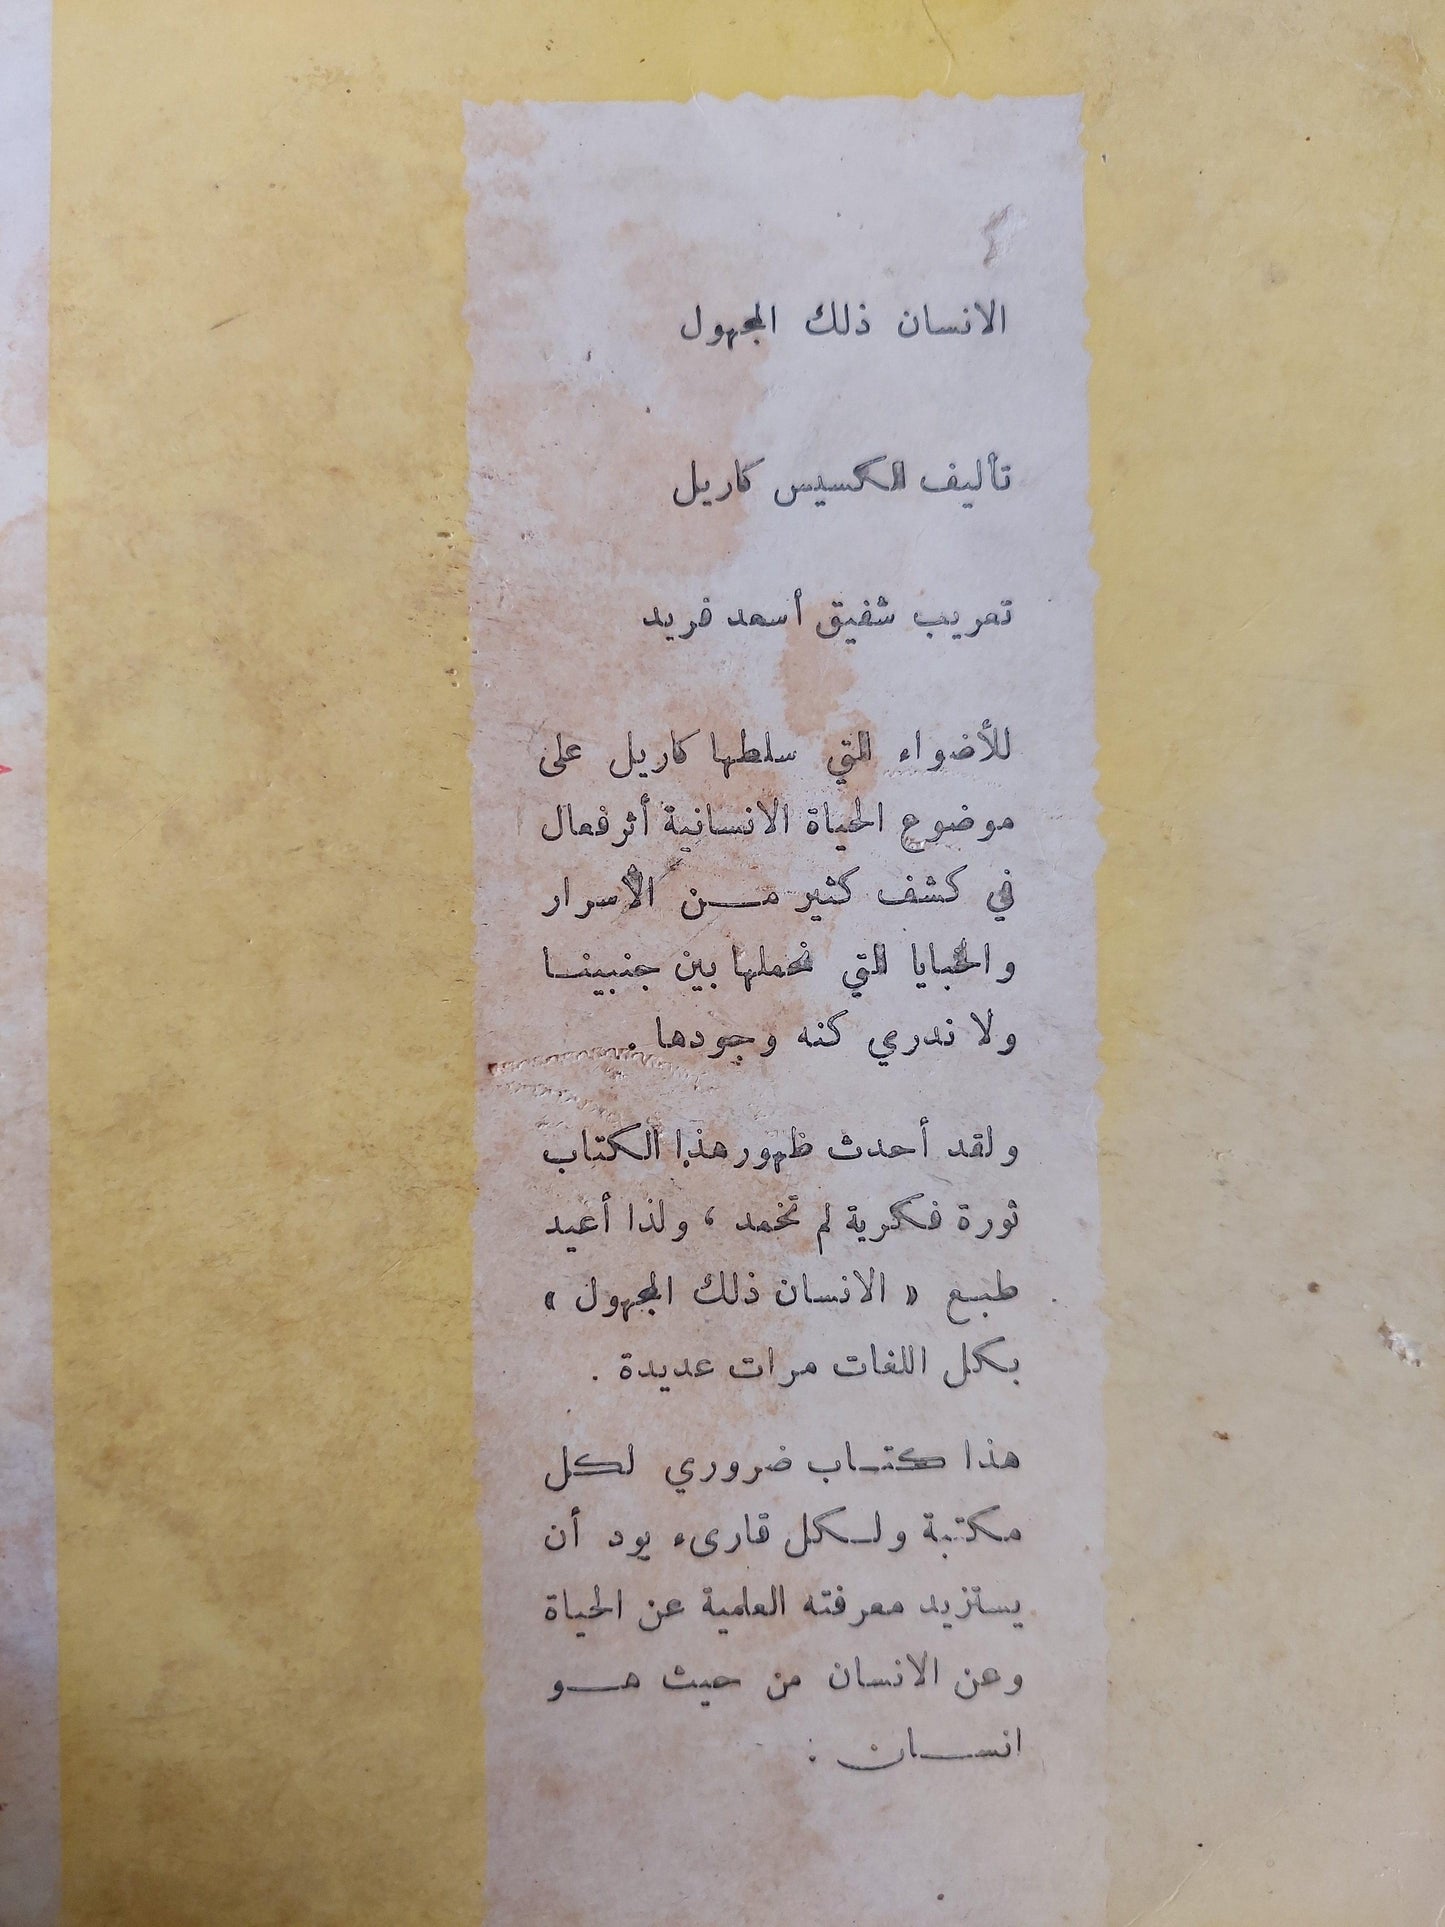 الانسان ذلك المجهول
تأليف الكسيس كاريل
تعريب شفيق أسعد فريد
للأضواء التي سلطها كاريل على
موضوع الحياة الانسانية أثر فعال
في كشف كثير مـــن الأسرار
والخبايا التي نحملها بين جنبينـــا
ولا ندري كنه وجودها .
ولقد أحدث ظهور هذا الكتاب
ثورة فكرية لم تخمد ، ولذا أعيد
طبع « الانسان ذلك المجهول »
بكل اللغات مرات عديدة .
هذا كتـاب ضروري لكل
مكتبة ولـكل قارىء يود أن
يستزيد معرفته العلمية عن الحياة
وعن الانسان من حيث هـــو
انســـان :